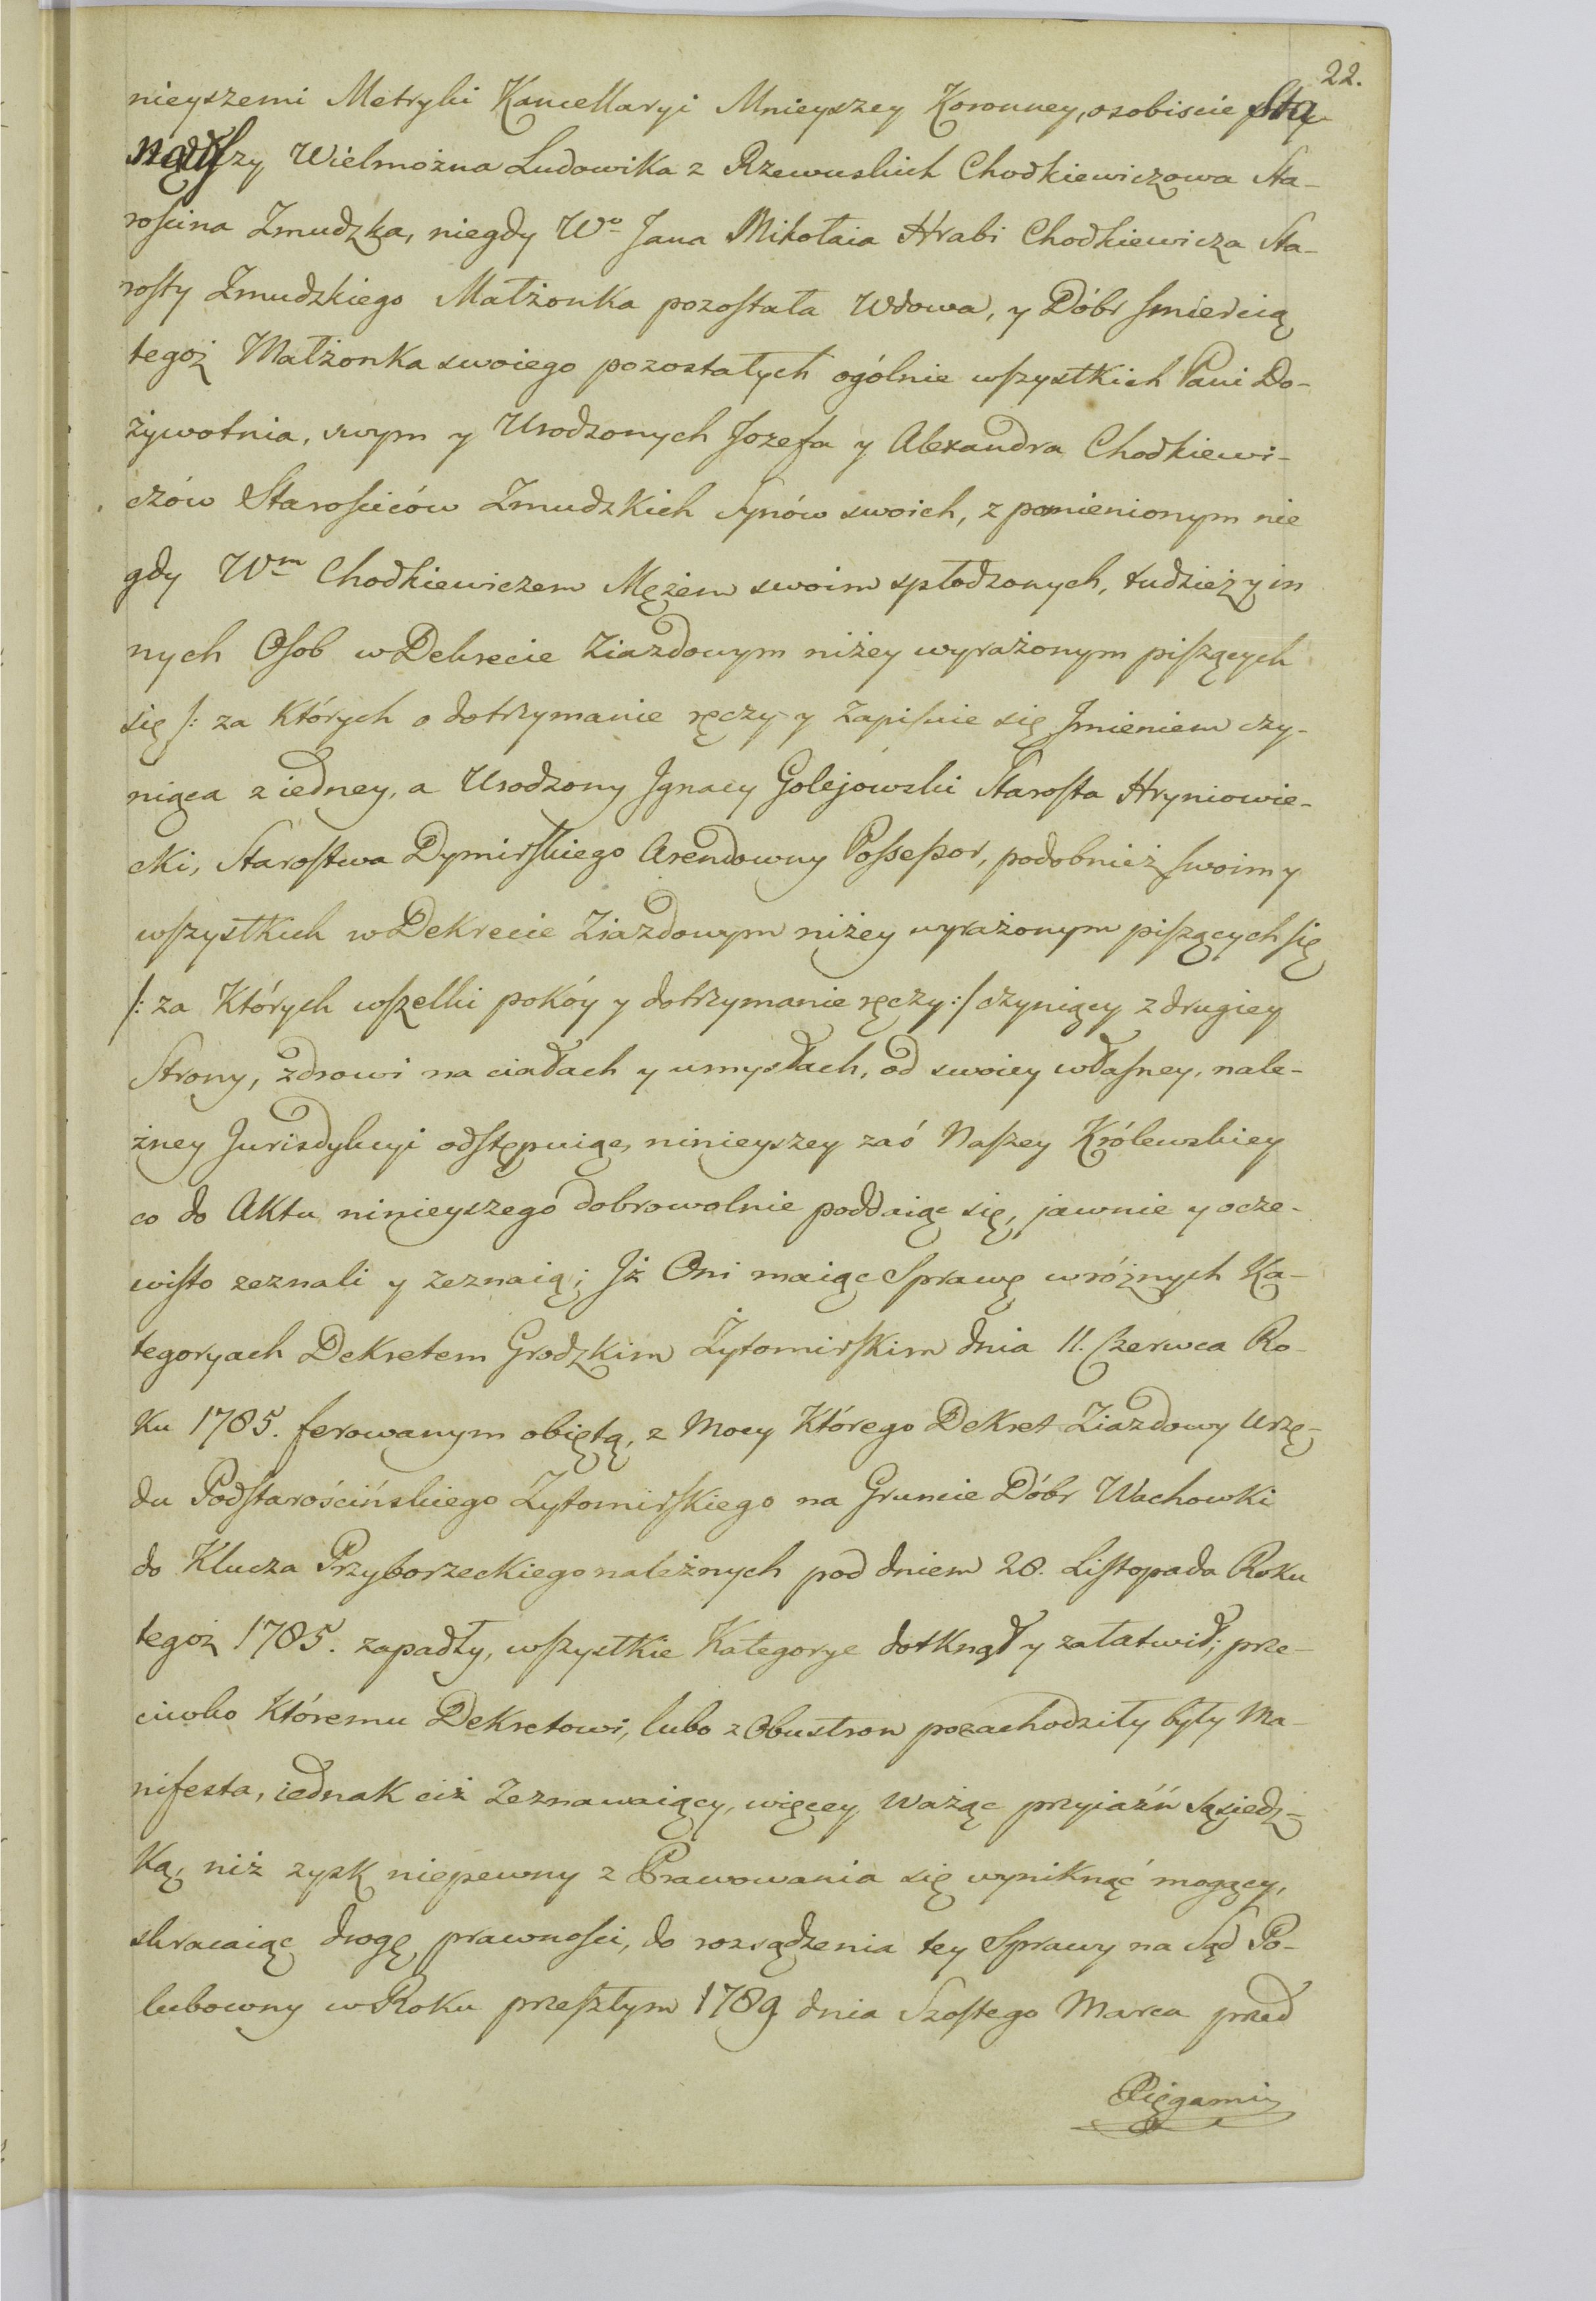 22.
nieyszemi Metryki Kancellaryi Mnieyszey Koronney, osobiscie sta
nąwszy Wielmożna Ludowika z Rzewuskich Chodkiewiczowa Sta-
roscina Zmudzka, niegdy Wo Jana Mikołaia Hrabi Chodkiewicza Sta-
rosty Zmudzkiego Małżonka pozostała Wdowa, y Dóbr smiercią
tegoż Małżonka swoiego pozostałych ogólnie wszystkich Pani Do-
żywotnia, swym y Urodzonych Jozefa y Alexandra Chodkiewi-
czów Starościców Zmudzkich Synów swoich, z pomienionym nie
gdy Wm Chodkiewiczem Mężem swoim spłodzonych, tudzież y in
nych Osob w Dekrecie Ziazdowym niżey wyrażonym piszących
się /: za Których o dotrzymanie ręczy y Zapisuie się Jmieniem czy-
niąca z iedney, a Urodzony Jgnacy Golejowski Starosta Hryniowie-
cki, Starostwa Dymirskiego Arendowny Possessor, podobnież swoim y
wszystkich w Dekrecie Ziazdowym niżey wyrażonym piszących się
/: za Których wszelki pokóy y dotrzymanie ręczy :/ czyniący z drugiey
Strony, zdrowi na ciałach y umysłach, od swoiey własney, nale-
żney Jurisdykcyi odstępuiąc, ninieyszey zaś Naszey Królewskiey
co do Aktu ninieyszego dobrowolnie poddaiąc się, jawnie y ocze-
wisto zeznali y zeznaią; Jż Oni maiąc Sprawę w różnych Ka-
tegoryach Dekretem Grodzkim Żytomirskim dnia 11. Czerwca Ro-
Ku 1785. ferowanym obiętą, z Mocy Którego Dekret Ziazdowy Urzę-
du Podstarościńskiego Zytomirskiego na Gruncie Dóbr Wachowki
do Klucza Przyborzeckiego należnych pod dniem 28. Listopada Roku
tegoż 1785. zapadły, wszystkie Kategorye dotknął y załatwił; prze-
ciwko Któremu Dekretowi, lubo z Obustron pozachodziły były Ma-
nifesta, iednak ciż Zeznawaiący, więcey Ważąc przyiaźń sąsiedz-
Ką, niż zysk niepewny z Prawowania się wyniknąć mogący,
skracaiąc drogę prawności, do rozsądzenia tey Sprawy na Sąd Po-
lubowny w Roku przeszłym 1789 dnia Szostego Marca przed
Pięgamin